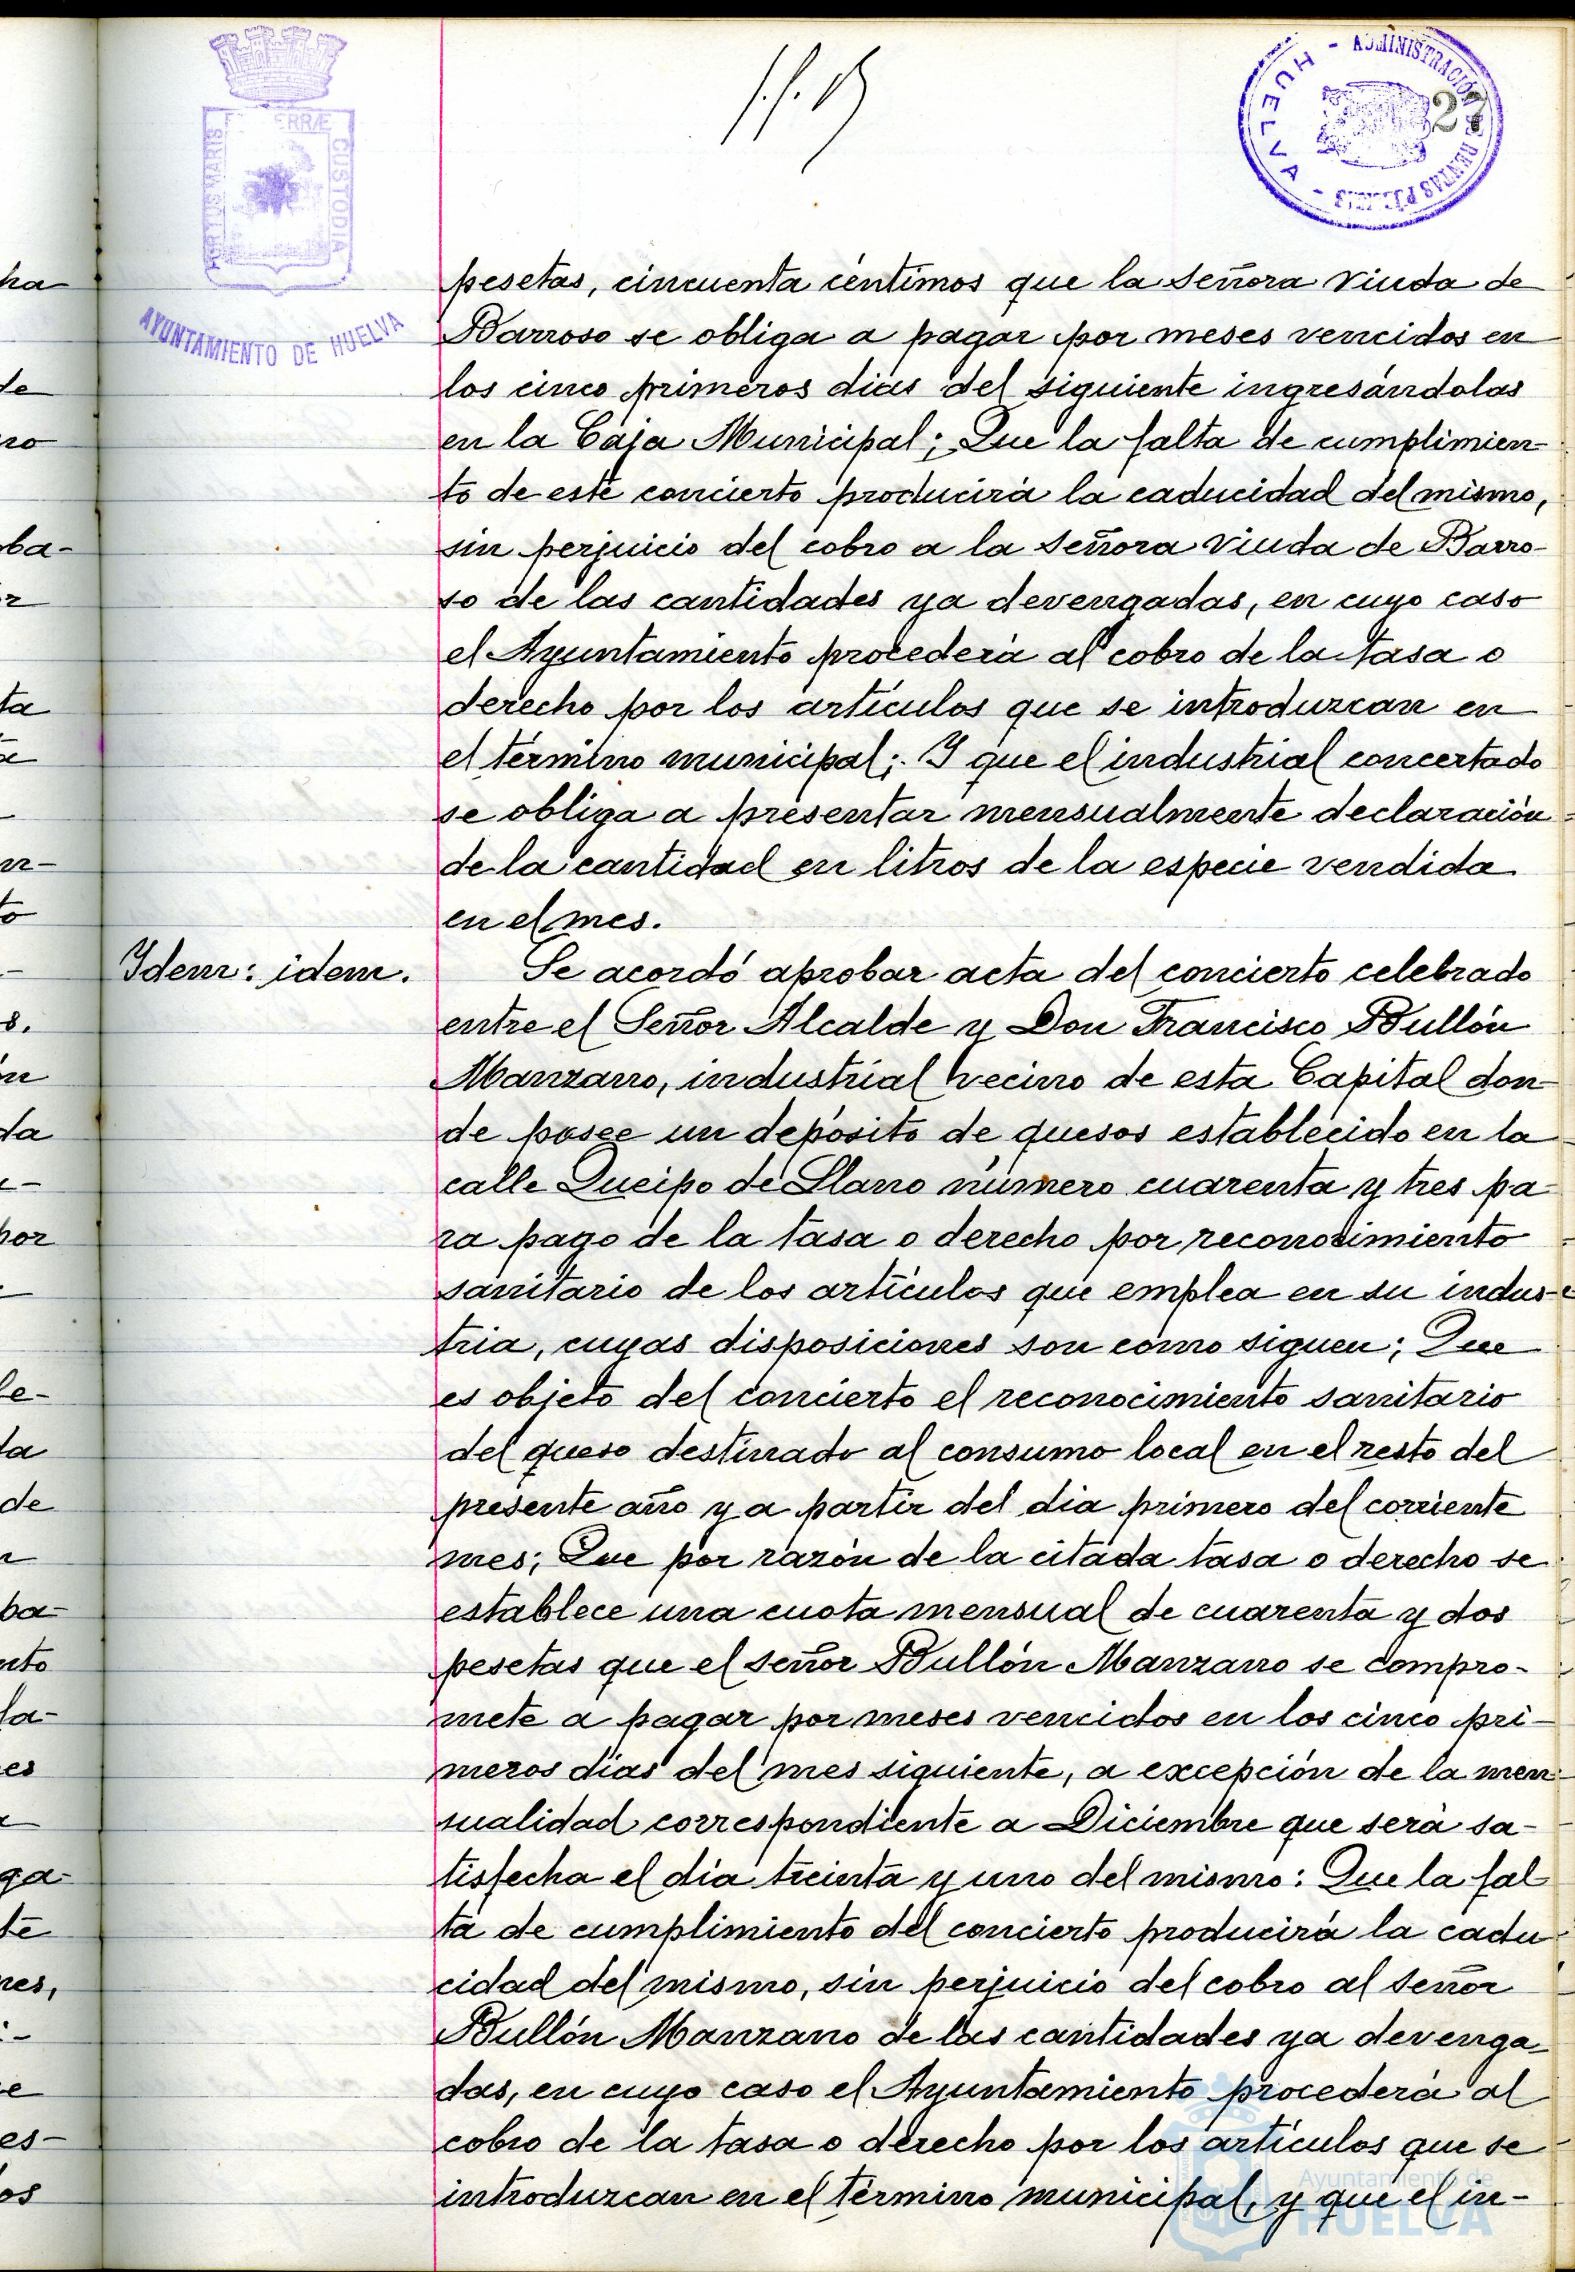 27
ADMINISTRACIÓN DE RENTAS PÚBLICAS - HUELVA -
PORTUS MARIS
TERRÆ
CUSTODIA
AYUNTAMIENTO DE HUELVA
pesetas, cincuenta céntimos que la señora viuda de
Barroso se obliga a pagar por meses vencidos en
los cinco primeros dias del siguiente ingresándolas
en la Caja Municipal; Que la falta de cumplimien-
to de este concierto producirá la caducidad del mismo,
sin perjuicio del cobro a la señora viuda de Barro-
so de las cantidades ya devengadas, en cuyo caso
el Ayuntamiento procederá al cobro de la tasa o
derecho por los artículos que se introduzcan en
el término municipal; Y que el industrial concertado
se obliga a presentar mensualmente declaración
de la cantidad en litros de la especie vendida
en el mes.
Idem: idem.
Se acordó aprobar acta del concierto celebrado
entre el Señor Alcalde y Don Francisco Bullón
Manzano, industrial vecino de esta Capital don-
de posee un depósito de quesos establecido en la
calle Queipo de Llano número cuarenta y tres pa-
ra pago de la tasa o derecho por reconocimiento
sanitario de los artículos que emplea en su indus-
tria, cuyas disposiciones son como siguen; Que
es objeto del concierto el reconocimiento sanitario
del queso destinado al consumo local en el resto del
presente año y a partir del dia primero del corriente
mes; Que por razón de la citada tasa o derecho se
establece una cuota mensual de cuarenta y dos
pesetas que el señor Bullón Manzano se compro-
mete a pagar por meses vencidos en los cinco pri-
meros días del mes siguiente, a excepción de la men-
sualidad correspondiente a Diciembre que será sa-
tisfecha el día treinta y uno del mismo: Que la fal-
ta de cumplimiento del concierto producirá la cadu-
cidad del mismo, sin perjuicio del cobro al señor
Bullón Manzano de las cantidades ya devenga-
das, en cuyo caso el Ayuntamiento procederá al
cobro de la tasa o derecho por los artículos que se
introduzcan en el término municipal, y que el in-
Ayuntamiento de
HUELVA